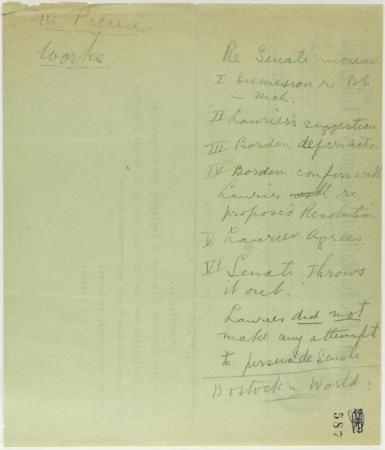 Works
Re Senate increase
I Discussion re B.C.
in Mch.
II Laurier's suggestion
III Borden defers action
IV Borden confers with
Laurier re
proposed Resolution
V Laurier Agrees
VI Senate throws
it out.
Laurier did not
make any attempt
to persuade Senate
Bostock in World!
587